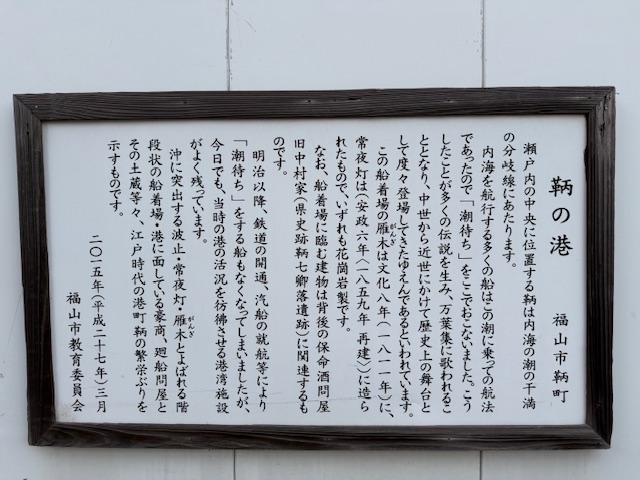 鞆の港
福山市鞆町
瀬戸内の中央に位置する鞆は内海の潮の干満
の分岐線にあたります。
内海を航行する多くの船はこの潮に乗っての航法
であったので「潮待ち」をここでおこないました。こう
したことが多くの伝説を生み、万葉集に歌われるこ
ととなり、中世から近世にかけて歴史上の舞台と
して度々登場してきたゆえんであるといわれています。
この船着場の雁木は文化八年(一八一一年)に、
がんぎ
常夜灯は(安政六年(一八五九年 再建))に造ら
れたもので、いずれも花崗岩製です。
なお、船着場に臨む建物は背後の保命酒問屋
旧中村家(県史跡鞆七卿落遺跡)に関連するも
のです。
明治以降、鉄道の開通、汽船の就航等により
「潮待ち」をする船もなくなってしまいましたが、
今日でも、当時の港の活況を彷彿させる港湾施設
がよく残っています。
沖に突出する波止・常夜灯・雁木とよばれる階
がんぎ
段状の船着場・港に面している豪商、廻船問屋と
その土蔵等々、江戸時代の港町鞆の繁栄ぶりを
示すものです。
二〇一五年(平成二十七年)三月
福山市教育委員会